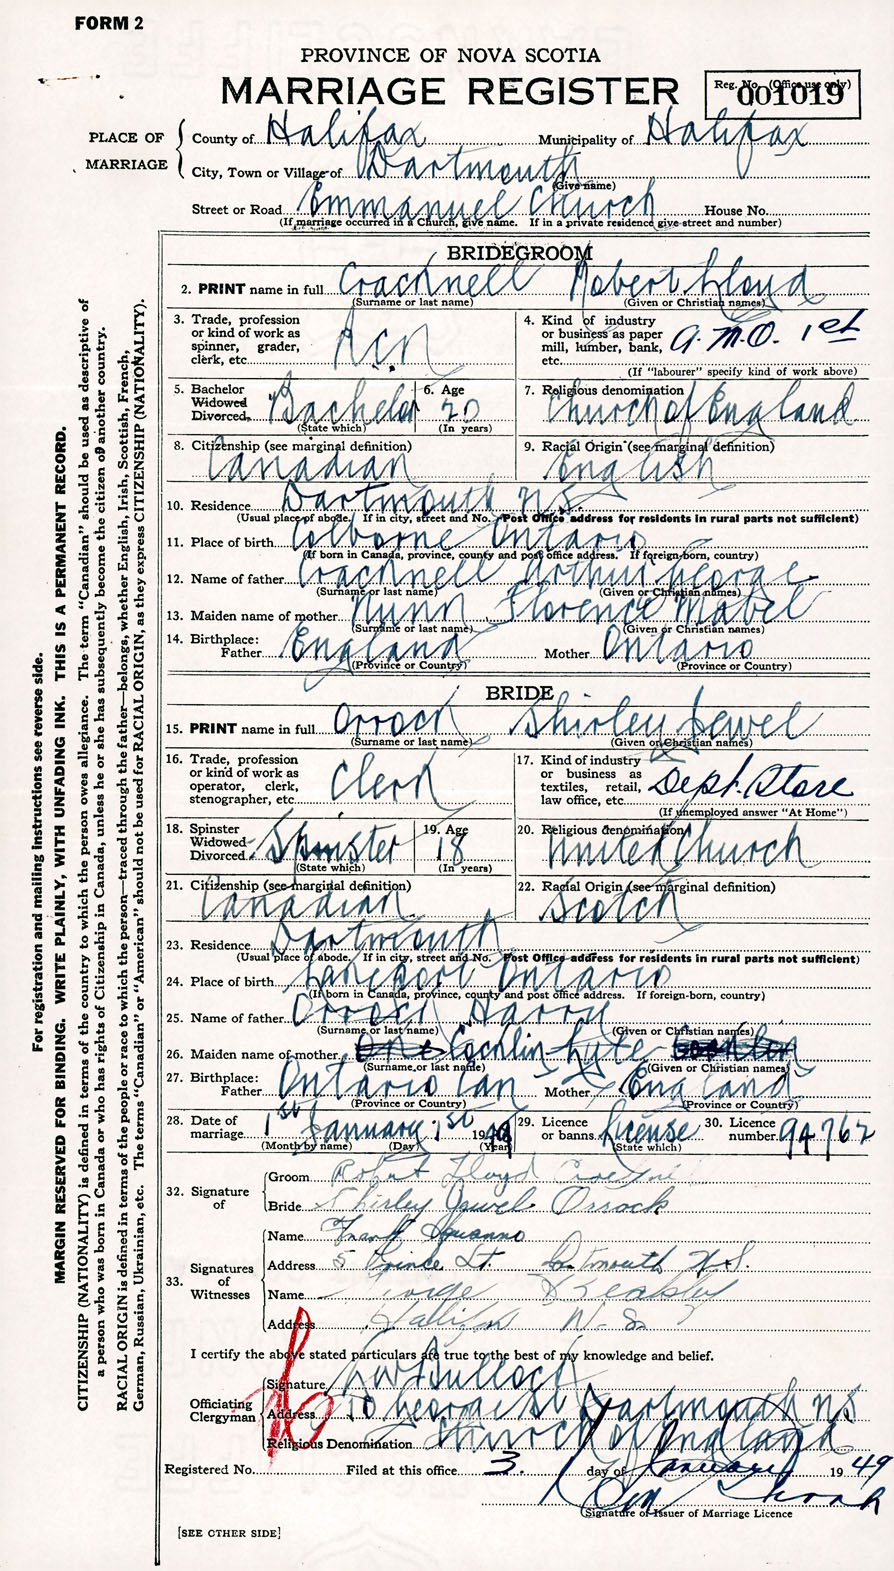 FORM 2
PROVINCE OF NOVA SCOTIA
MARRIAGE REGISTER
Reg. No. (Office use only)
001019
PLACE OF MARRIAGE
County of Halifax Municipality of Halifax
City, Town or Village of Dartmouth
(Give name)
Street or Road Emmanuel Church House No.
(If marriage occurred in a Church, give name. If in a private residence give street and number)
BRIDEGROOM
2. PRINT name in full Cracknell Robert Lloyd
(Surname or last name) (Given or Christian names)
3. Trade, profession or kind of work as spinner, grader, clerk, etc. RCN
4. Kind of industry or business as paper mill, lumber, bank, etc. A.M.O. 1st
(If "labourer" specify kind of work above)
5. Bachelor Widowed Divorced. Bachelor
(State which)
6. Age 20
(In years)
7. Religious denomination Church of England
8. Citizenship (see marginal definition) Canadian
9. Racial Origin (see marginal definition) English
10. Residence Dartmouth N.S.
(Usual place of abode. If in city, street and No. Post Office address for residents in rural parts not sufficient)
11. Place of birth Colborne Ontario
(If born in Canada, province, county and post office address. If foreign-born, country)
12. Name of father Cracknell Arthur George
(Surname or last name) (Given or Christian names)
13. Maiden name of mother Nunn Florence Mabel
(Surname or last name) (Given or Christian names)
14. Birthplace:
Father England Mother Ontario
(Province or Country) (Province or Country)
BRIDE
15. PRINT name in full Orrock Shirley Jewel
(Surname or last name) (Given or Christian names)
16. Trade, profession or kind of work as operator, clerk, stenographer, etc Clerk
17. Kind of industry or business as textiles, retail, law office, etc. Dept. Store
(If unemployed answer "At Home")
18. Spinster Widowed Divorced. Spinster
(State which)
19. Age 18
(In years)
20. Religious denomination United Church
21. Citizenship (see marginal definition) Canadian
22. Racial Origin (see marginal definition) Scotch
23. Residence Dartmouth
(Usual place of abode. If in city, street and No. Post Office address for residents in rural parts not sufficient)
24. Place of birth Ontario
(If born in Canada, province, county and post office address. If foreign-born, country)
25. Name of father Orrock Harry
(Surname or last name) (Given or Christian names)
26. Maiden name of mother
(Surname or last name) (Given or Christian names)
27. Birthplace:
Father Ontario Can Mother England
(Province or Country) (Province or Country)
28. Date of marriage 1st January 1st 1949
(Month by name) (Day) (Year)
29. Licence or banns License
(State which)
30. Licence number 94762
32. Signature of
Groom Robert Lloyd
Bride Shirley Jewel Orrock
33. Signatures of Witnesses
Name Frank
Address 5 Prince St. Dartmouth N.S.
Name George
Address Halifax N.S.
I certify the above stated particulars are true to the best of my knowledge and belief.
Officiating Clergyman
Signature Bullock
Address 10 George St Dartmouth NS
Religious Denomination Church of England
Registered No. Filed at this office 3. day of January 1949
(Signature of Issuer of Marriage Licence
[SEE OTHER SIDE]
For registration and mailing instructions see reverse side.
MARGIN RESERVED FOR BINDING. WRITE PLAINLY, WITH UNFADING INK. THIS IS A PERMANENT RECORD.
CITIZENSHIP (NATIONALITY) is defined in terms of the country to which the person owes allegiance. The term "Canadian" should be used as descriptive of
a person who was born in Canada or who has rights of Citizenship in Canada, unless he or she has subsequently become the citizen of another country.
RACIAL ORIGIN is defined in terms of the people or race to which the person—traced through the father—belongs, whether English, Irish, Scottish, French,
German, Russian, Ukrainian, etc. The terms "Canadian" or "American" should not be used for RACIAL ORIGIN, as they express CITIZENSHIP (NATIONALITY).